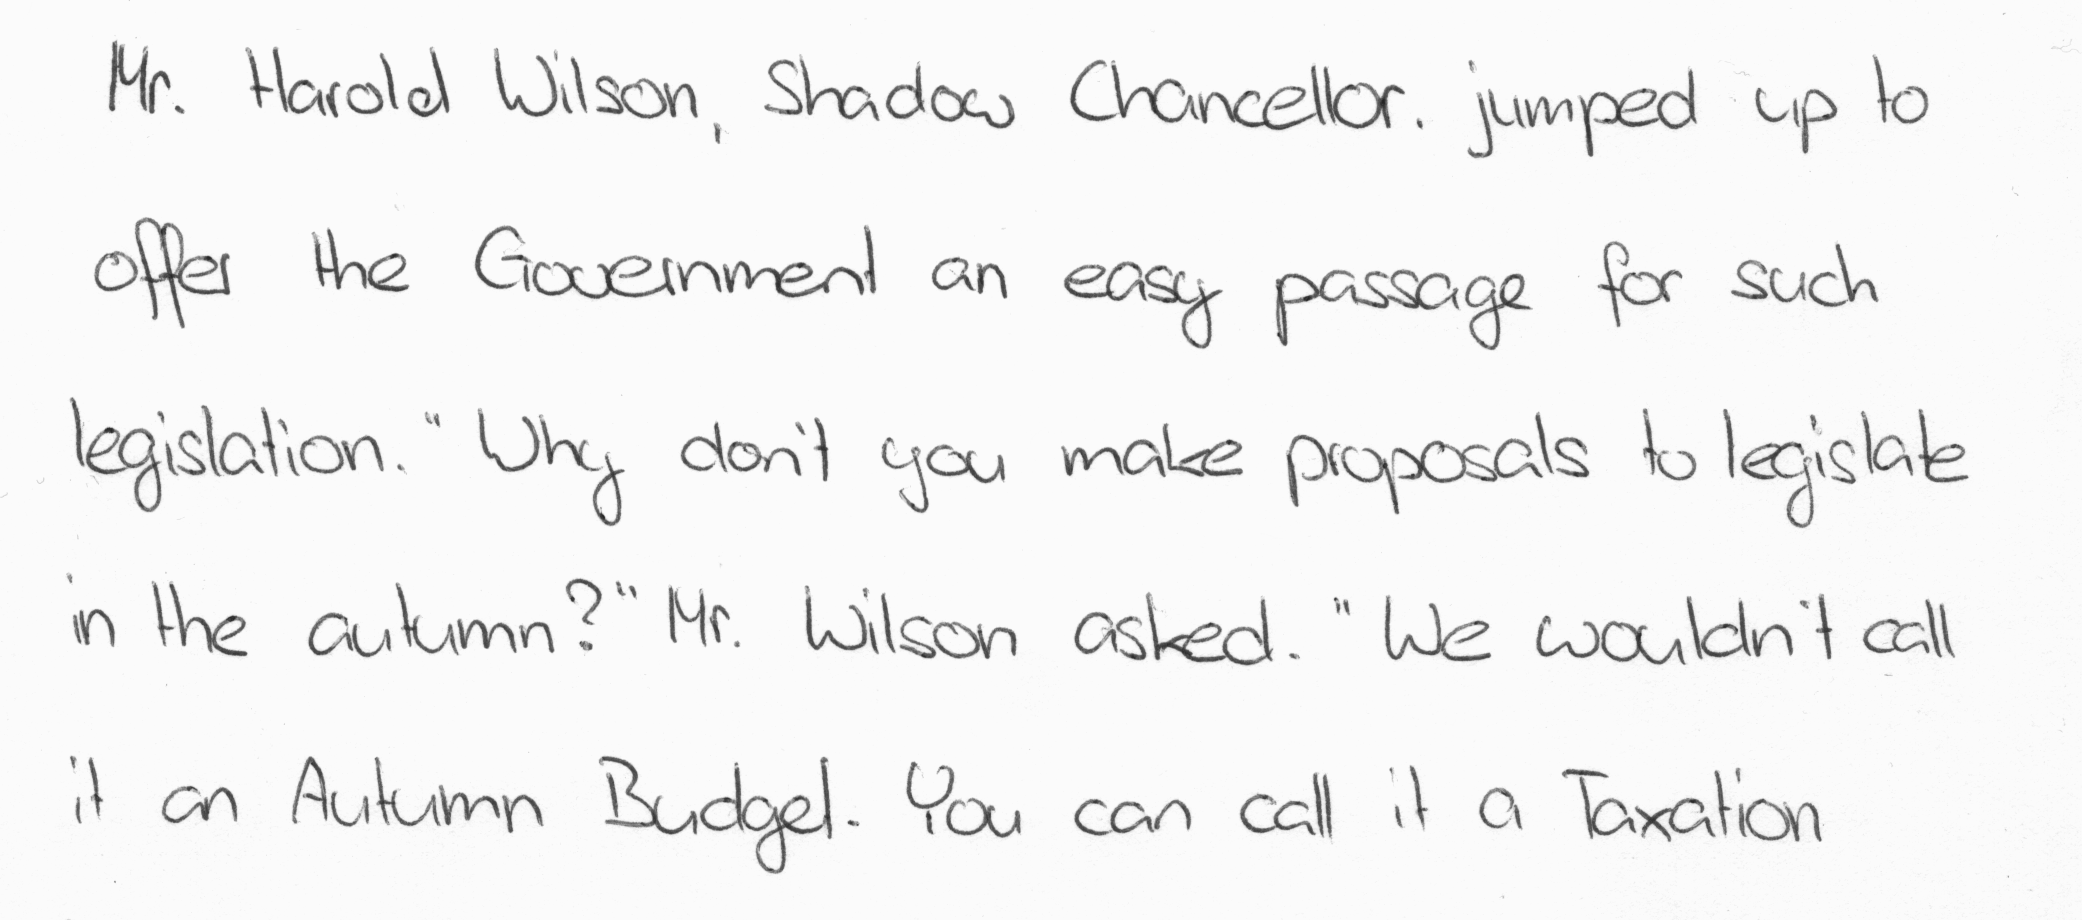 Mr. Harold Wilson, Shadow Chancellor. jumped up to
offer the Government an easy passage for such
legislation. "Why don't you make proposals to legislate
in the autumn?" Mr. Wilson asked. "We wouldn't call
it an Autumn Budget. You can call it a Taxation